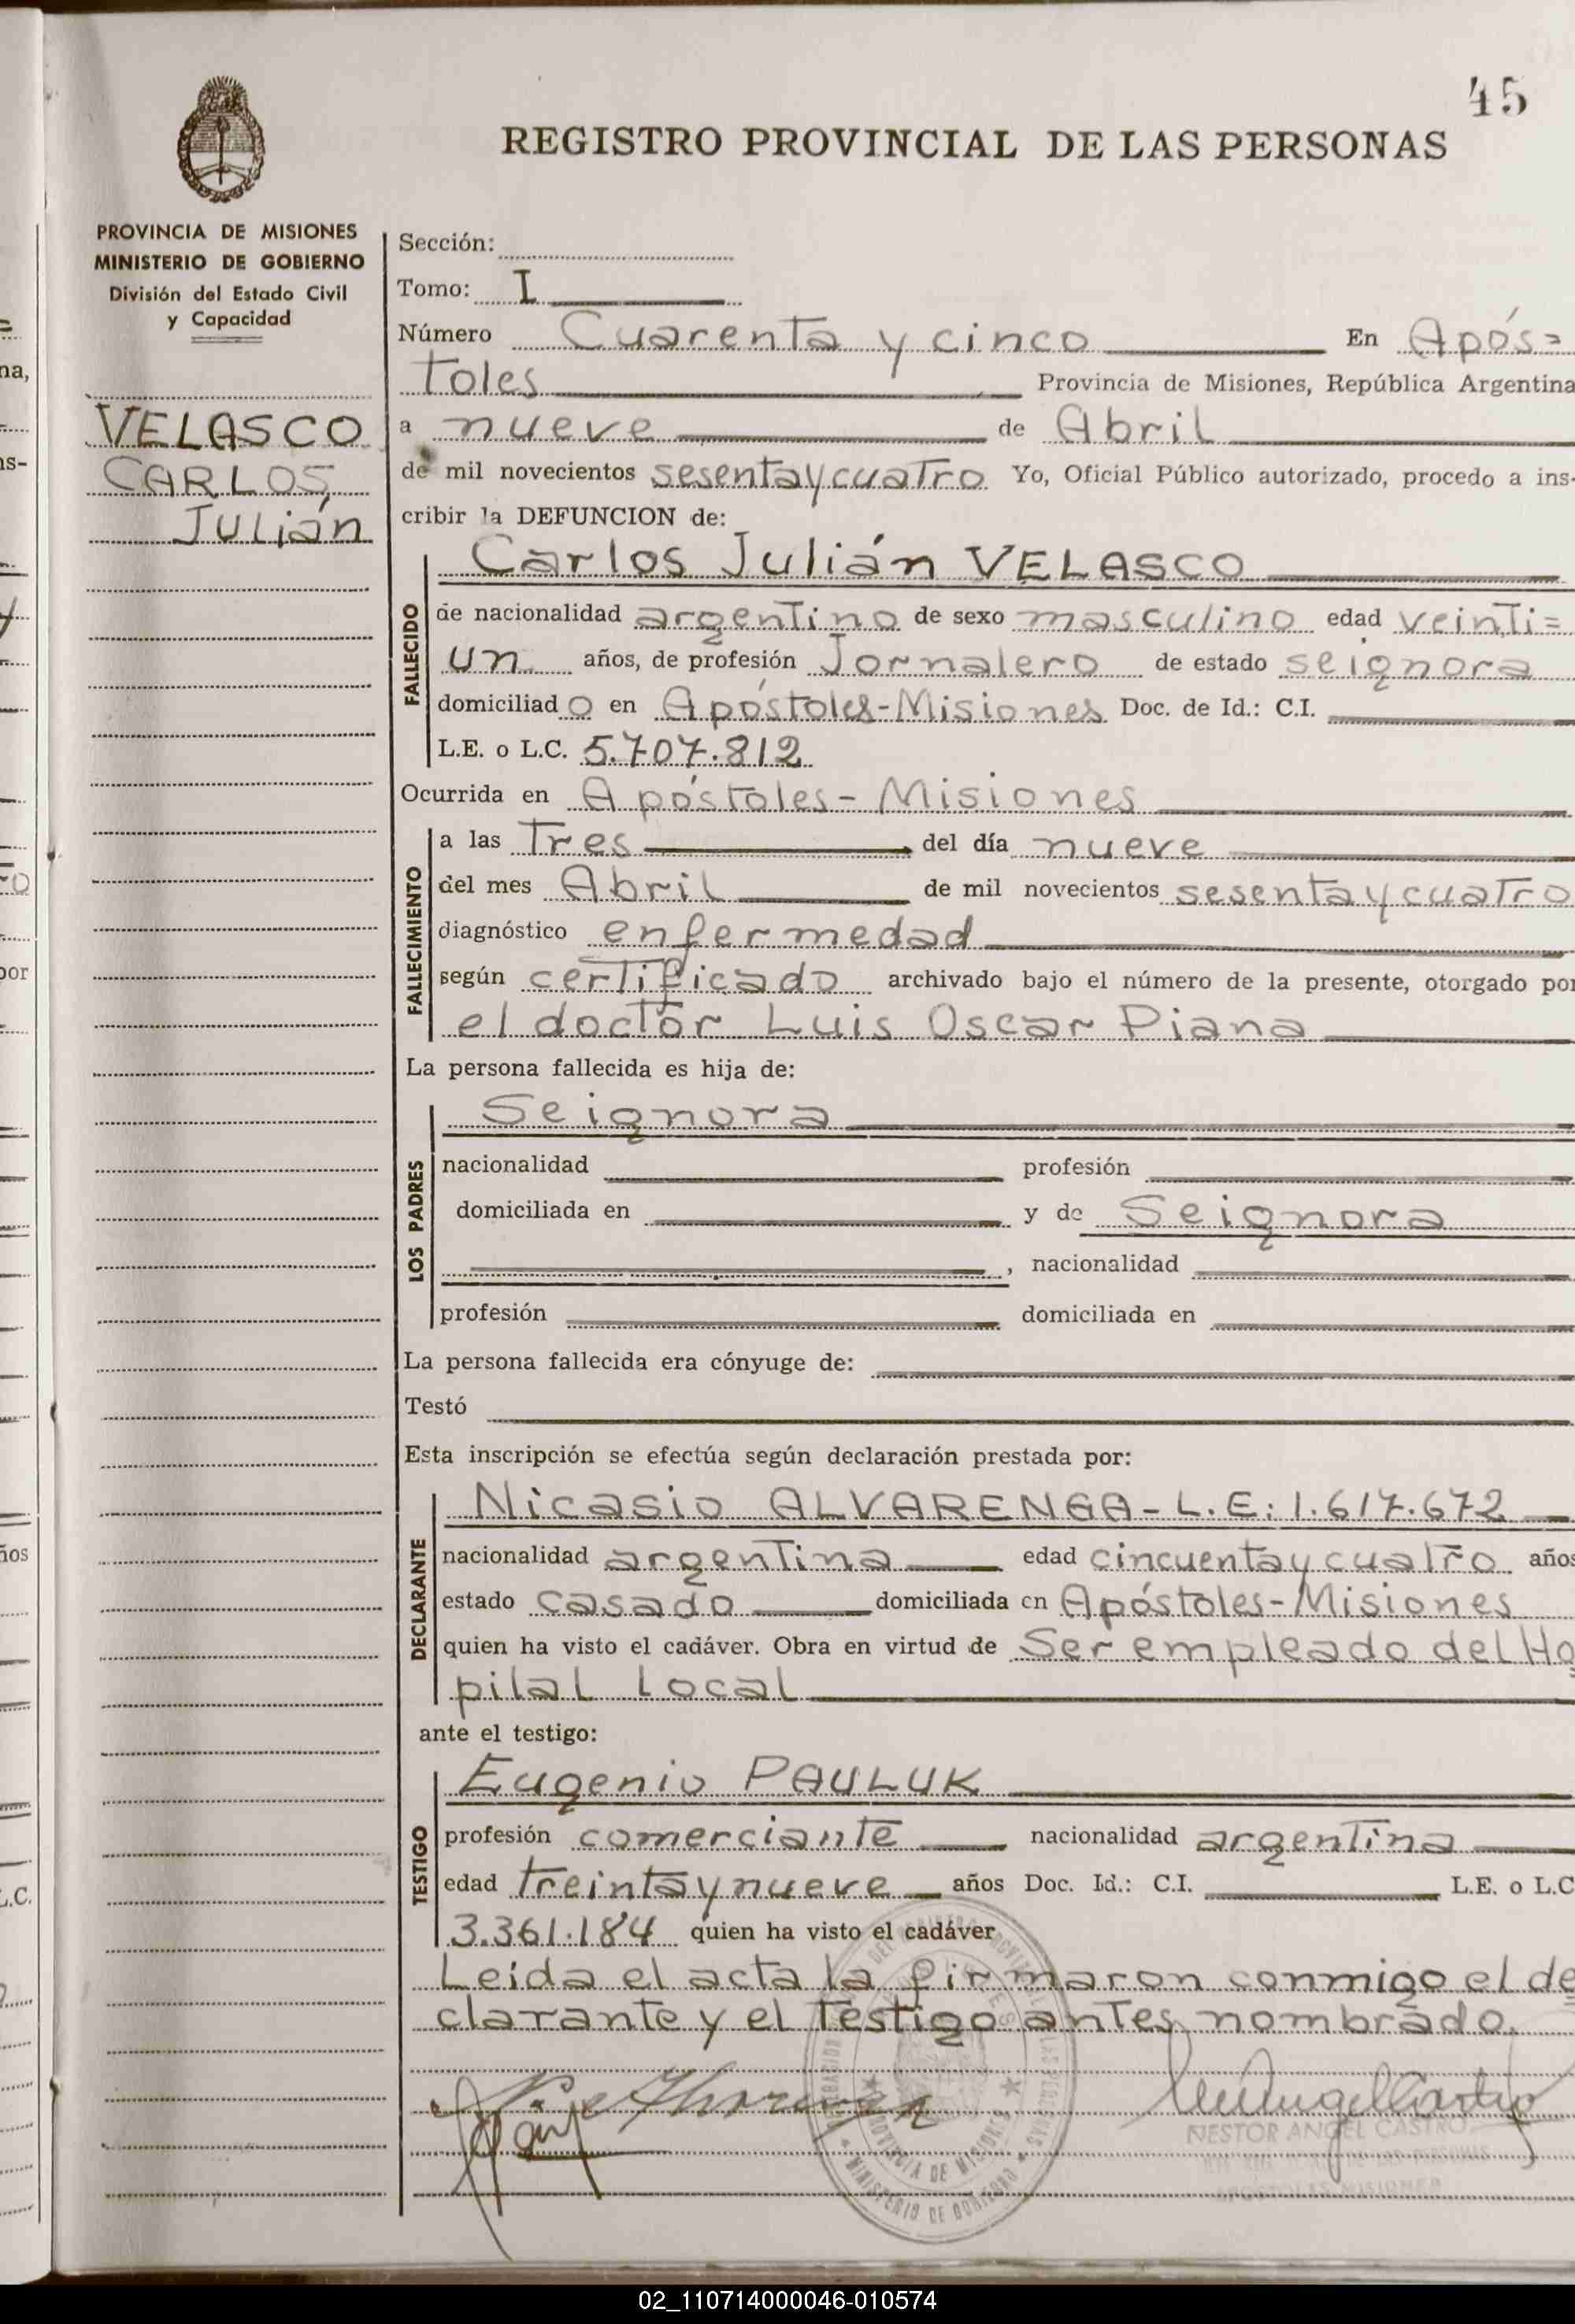 45
REGISTRO PROVINCIAL DE LAS PERSONAS
PROVINCIA DE MISIONES
MINISTERIO DE GOBIERNO
División del Estado Civil
y Capacidad
VELASCO
CARLOS
JULIán
Sección:
Tomo: I
Número Cuarenta y cinco En Após=
toles Provincia de Misiones, República Argentina
a nueve de Abril
de mil novecientos sesentaycuatro Yo, Oficial Público autorizado, procedo a ins-
cribir la DEFUNCION de:
Carlos Julián VELASCO
FALLECIDO
de nacionalidad argentino de sexo masculino edad veinti=
un años, de profesión Jornalero de estado seignora
domiciliado en Apóstoles-Misiones Doc. de Id.: C.I.
L.E. o L.C. 5.707.812
Ocurrida en Apóstoles - Misiones
FALLECIMIENTO
a las Tres del día nueve
del mes Abril de mil novecientos sesentaycuatro
diagnóstico enfermedad
según certificado archivado bajo el número de la presente, otorgado por
el doctor Luis Oscar Piana
La persona fallecida es hija de:
LOS PADRES
Seignora
nacionalidad profesión
domiciliada en y de Seignora
, nacionalidad
profesión domiciliada en
La persona fallecida era cónyuge de:
Testó
Esta inscripción se efectúa según declaración prestada por:
DECLARANTE
Nicasio ALVARENGA - L.E: 1.617.672
nacionalidad argentina edad cincuentaycuatro años
estado casado domiciliada en Apóstoles-Misiones
quien ha visto el cadáver. Obra en virtud de Ser empleado del Hos
pital Local
ante el testigo:
TESTIGO
Eugenio PAULUK
profesión comerciante nacionalidad argentina
edad treintaynueve años Doc. Id.: C.I. L.E. o L.C
3.361.184 quien ha visto el cadáver
Leída el acta la firmaron conmigo el de
clarante y el testigo antes nombrado.
NESTOR ANGEL CASTRO
APOSTOLES MISIONES
PROVINCIA DE MISIONES
MINISTERIO DE GOBIERNO
na,
por
ños
L.C.
02_110714000046-010574